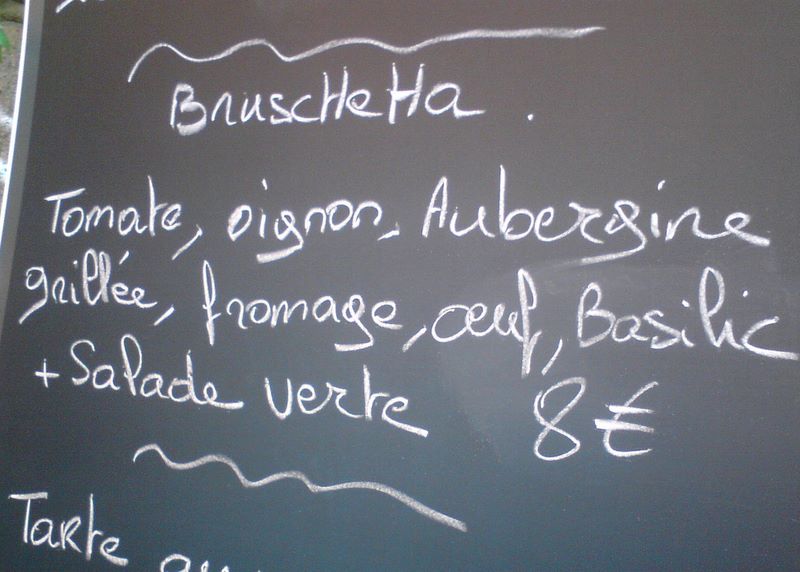 Bruschetta.
Tomate, oignon, Aubergine
grillée, fromage, œuf, Basilic
+ Salade verte 8€
Tarte